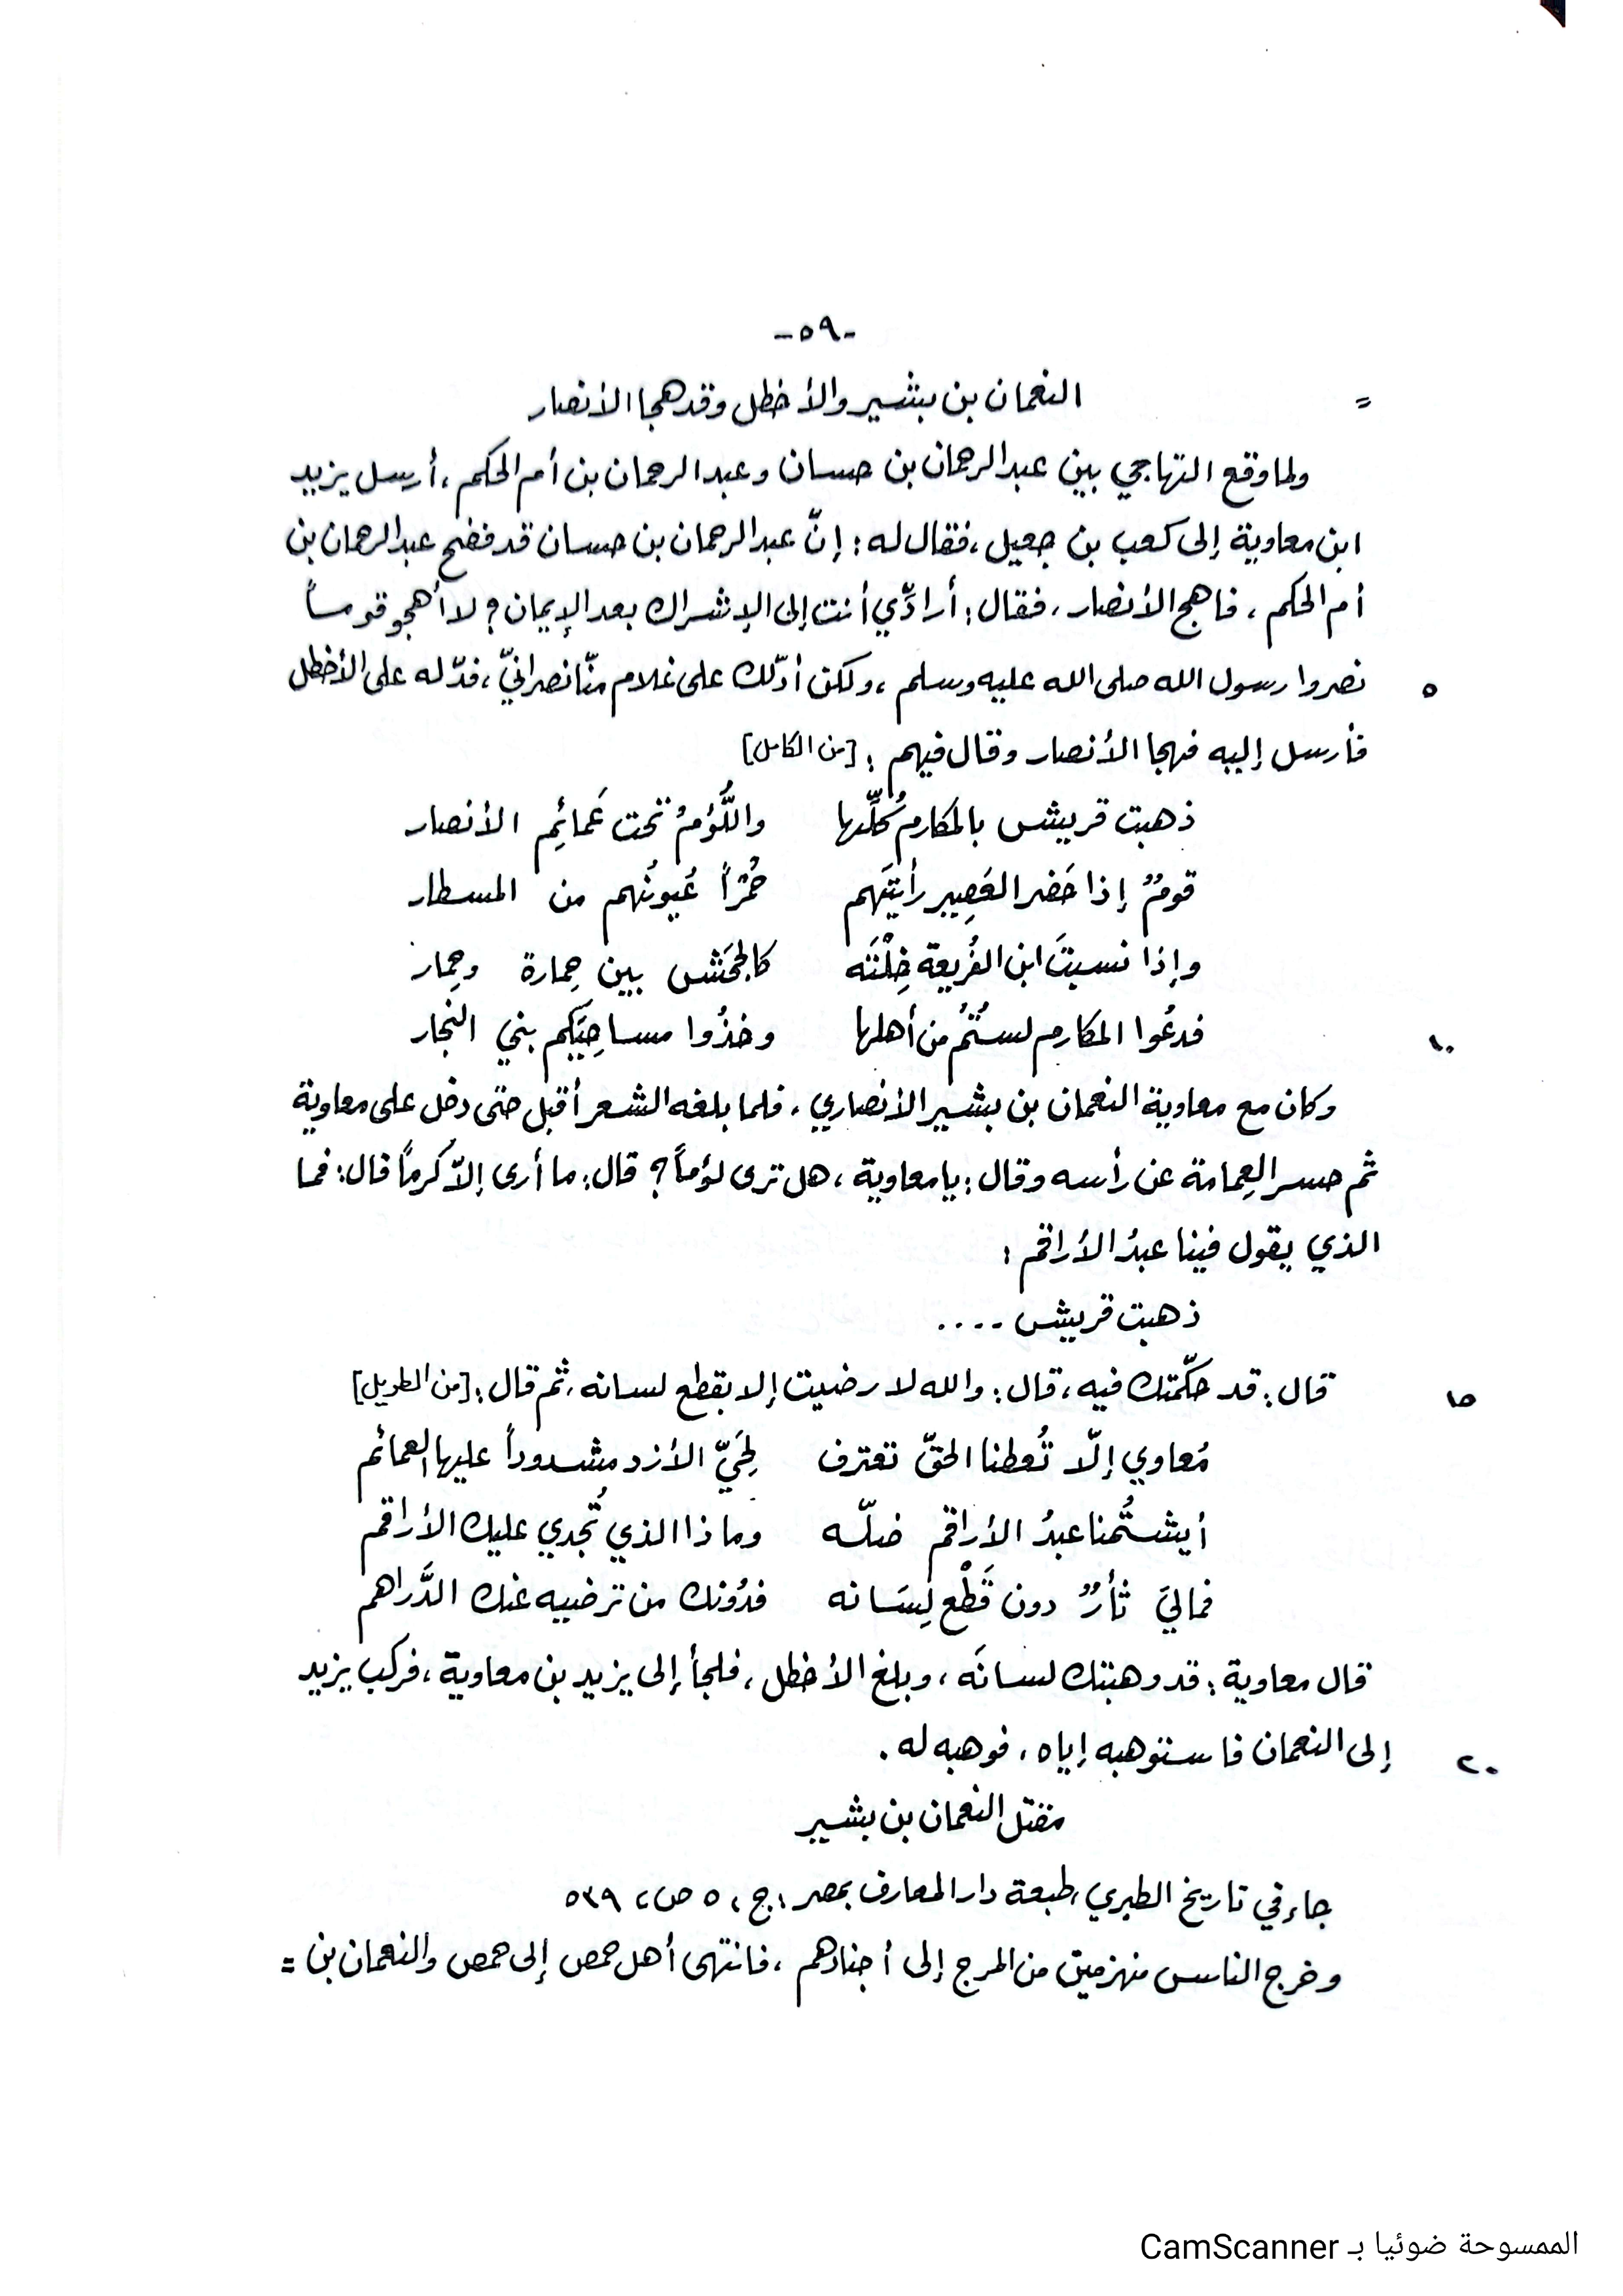 -٥٩-
= النعمان بن بشير والأخطل وقد هجا الأنصار
ولما وقع التهاجي بين عبد الرحمان بن حسان وعبد الرحمان بن أم الحكم ، أرسل يزيد
ابن معاوية إلى كعب بن جعيل ، فقال له : إنّ عبد الرحمان بن حسان قد فضح عبد الرحمان بن
أم الحكم ، فاهج الأنصار ، فقال : أرادِّي أنت إلى الإشراك بعد الإيمان ؟ لا أهجو قوماً
٥ نصروا رسول الله صلى الله عليه وسلم ، ولكن أدّلك على غلام منّا نصرانيّ ، فدّله على الأخطل
فأرسل إليه فهجا الأنصار وقال فيهم : [من الكامل]
ذهبت قريش بالمكارم كُلِّها واللُّؤمُ تحت عَمائِمِ الأنصار
قومٌ إذا حَضر العَصِير رأيتَهم حُمْراً عُيونُهم من المسطار
وإذا نسبتَ ابن الفُريعة خِلْتَه كالجَحَش بين حِمارة وحِمار
١٠ فدعُوا المكارم لستُمُ من أهلها وخذُوا مساحِيَكم بني النجار
وكان مع معاوية النعمان بن بشير الأنصاري ، فلما بلغه الشعر أقبل حتى دخل على معاوية
ثم حسر العِمامة عن رأسه وقال : يا معاوية ، هل ترى لؤماً ؟ قال : ما أرى إلاّ كرماً قال : فما
الذي يقول فينا عبدُ الأراقم :
ذهبت قريش ....
١٥ قال : قد حكّمتك فيه ، قال : والله لا رضيت إلا بقطع لسانه ، ثم قال : [من الطويل]
مُعاوي إلّا تُعطنا الحقّ تعترف لِحَيّ الأزد مشدوداً عليها العمائم
أيشتُمنا عبدُ الأراقم ضلّه وماذا الذي تُجدي عليك الأراقم
فماليَ ثأرٌ دون قَطْع لِسَانه فدُونك من ترضيه عنك الدَّراهم
قال معاوية : قد وهبتك لسانَه ، وبلغ الأخطل ، فلجأ إلى يزيد بن معاوية ، فركب يزيد
٢٠ إلى النعمان فاستوهبه إياه ، فوهبه له .
مقتل النعمان بن بشير
جاء في تاريخ الطبري ، طبعة دار المعارف بمصر ؛ ج ، ٥ ص ، ٥٣٩
وخرج الناس منهزمين من المرج إلى أجنادهم ، فانتهى أهل حمص إلى حمص والنعمان بن =
الممسوحة ضوئيا بـ CamScanner